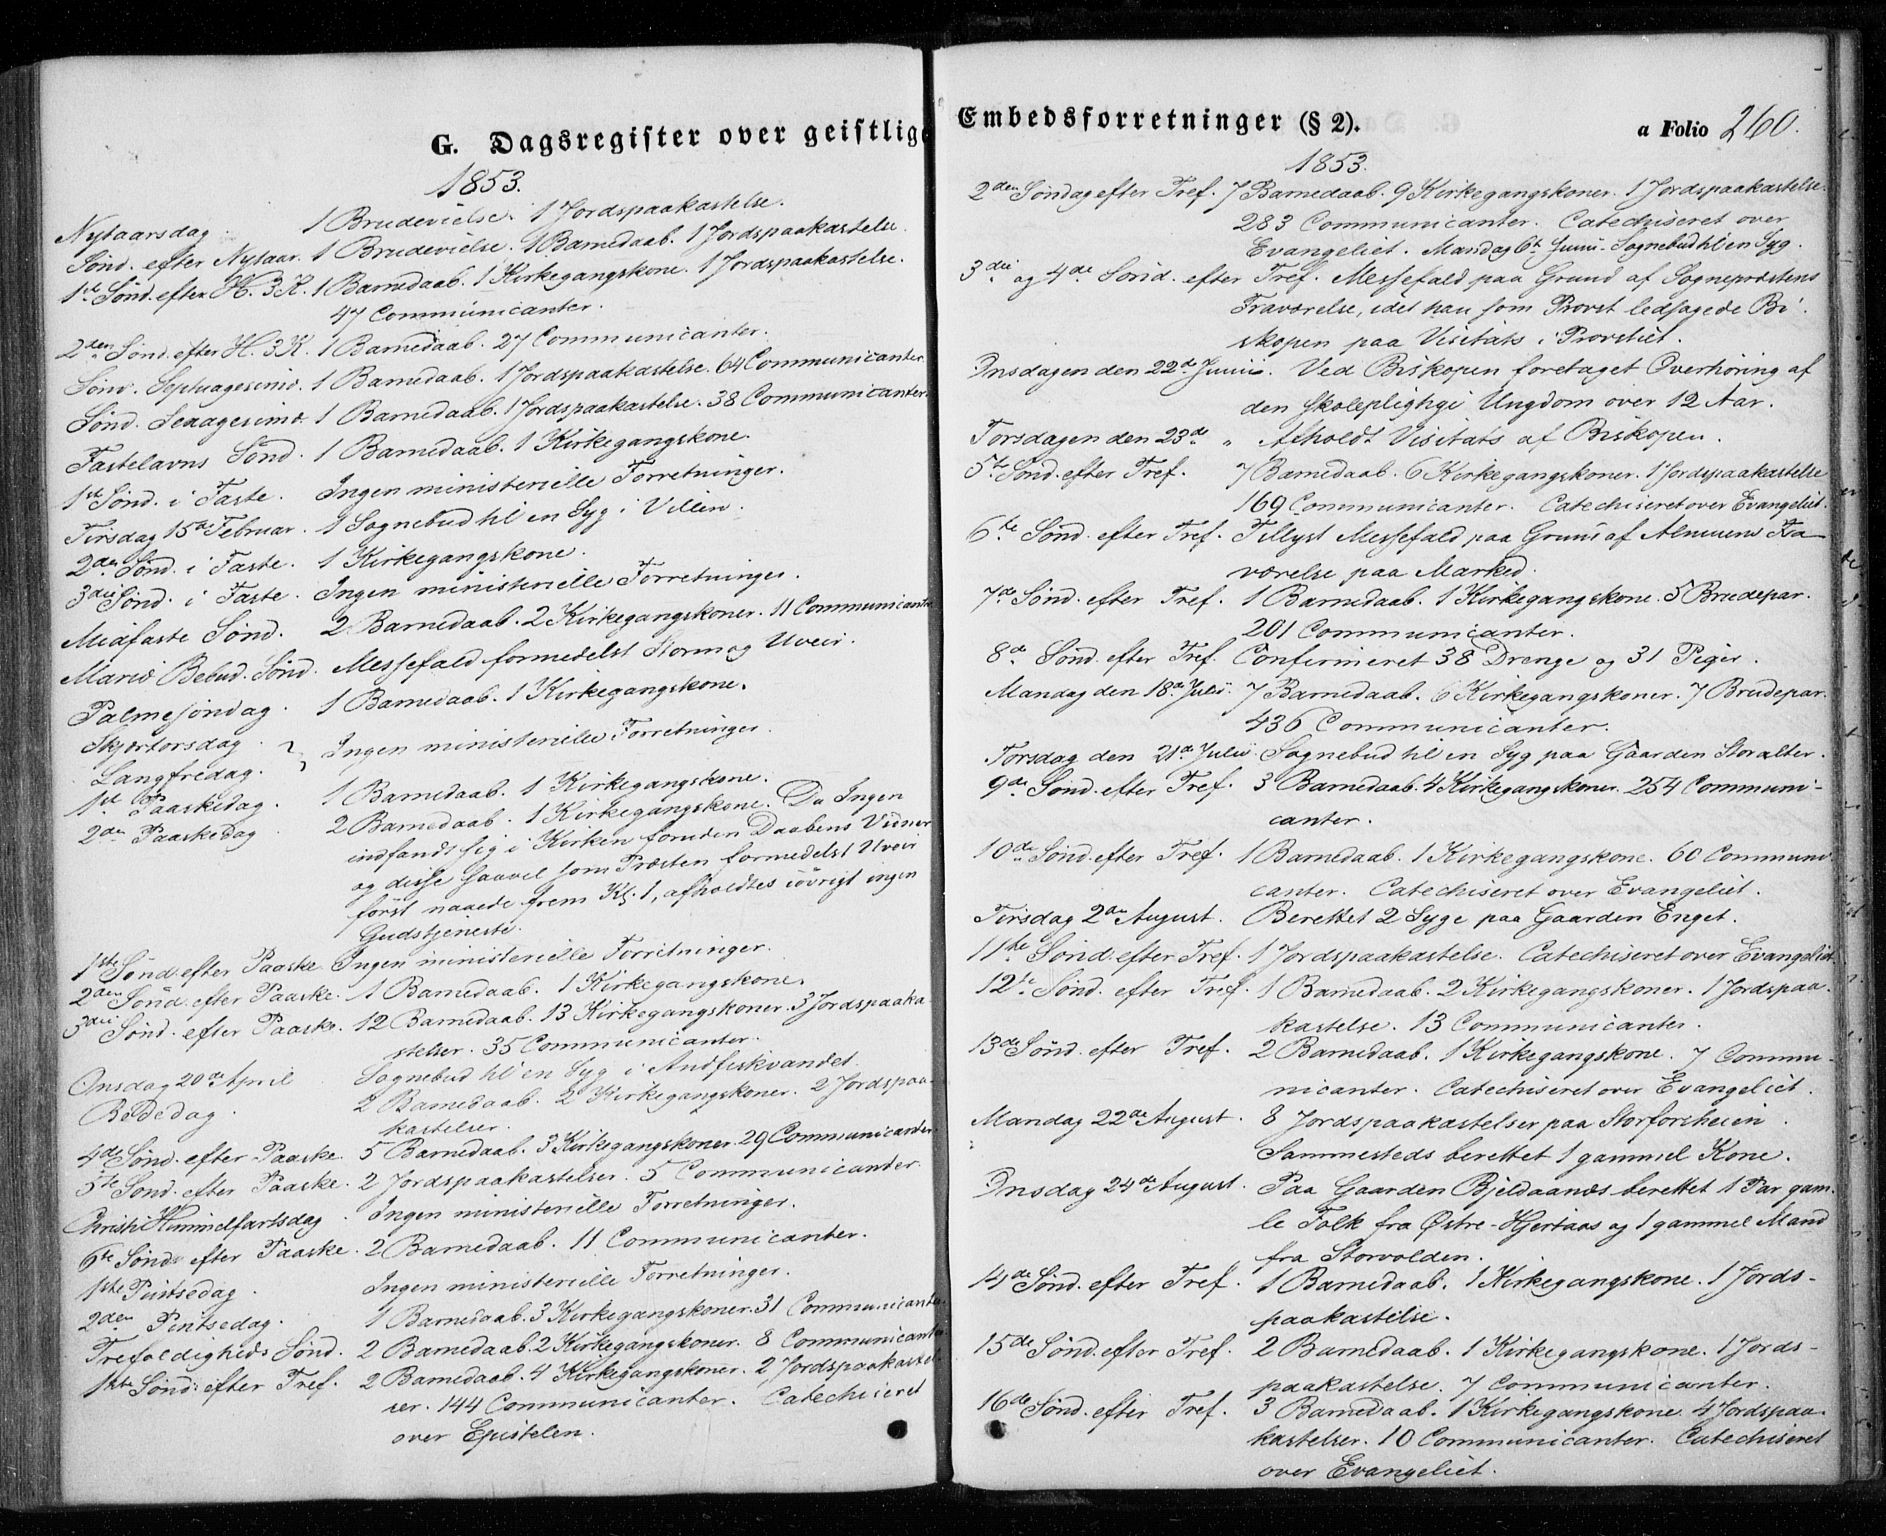 G. Dagsregister over geistlige
1853.
Nytaarsdag. 1 Brudevielse. 1 Jordspaakastelse.
Sønd. efter Nytaar. 1 Brudevielse. 1 Barnedaab. 1 Jordspaakastelse.
1ste Sønd. efter H. 3 K. 1 Barnedaab. 1 Kirkegangskone. 1 Jordspaakastelse.
47 Communicanter.
2den Sønd. efter H. 3 K. 1 Barnedaab. 27 Communicanter.
Sønd. Septuagesimæ. 1 Barnedaab. 1 Jordspaakastelse. 64 Communicanter.
Sønd. Sexagesimæ. 1 Barnedaab. 1 Jordspaakastelse. 38 Communicanter.
Fastelavns Sønd. 1 Barnedaab. 1 Kirkegangskone.
1ste Sønd. i Faste. Ingen ministerielle Forretninger.
Tirsdag 15de Februar. 1 Sognebud til en Syg i
2den Sønd. i Faste. 1 Kirkegangskone.
3die Sønd. i Faste. Ingen ministerielle Forretninger.
Midfaste Sønd. 2 Barnedaab. 2 Kirkegangskoner. 11 Communicanter
Mariæ Bebud. Sønd. Messefald formedelst Storm og Uveir.
Palmesøndag. 1 Barnedaab. 1 Kirkegangskone.
Skjærtorsdag.
Langfredag. Ingen ministerielle Forretninger.
1ste Paaskedag. 1 Barnedaab. 1 Kirkegangskone.
2den Paaskedag. 2 Barnedaab. 1 Kirkegangskone. Da Ingen
indfandt sig i Kirken foruden Daabens Vidner
og disse saavel som Præsten formedelst Uveir
først naaede frem Kl. 1, afholdtes iøvrigt ingen
Gudstjeneste.
1ste Sønd. efter Paaske. Ingen ministerielle Forretninger.
2den Sønd. efter Paaske. 1 Barnedaab. 1 Kirkegangskone.
3die Sønd. efter Paaske. 12 Barnedaab. 13 Kirkegangskoner. 3 Jordspaaka
stelser. 35 Communicanter.
Onsdag 20de April Sognebud til en Syg i Andfiskvandet.
Bededag. 2 Barnedaab. 2 Kirkegangskoner. 2 Jordspaa-
kastelser.
4de Sønd. efter Paaske. 5 Barnedaab. 3 Kirkegangskoner. 29 Communicanter
5te Sønd. efter Paaske. 2 Jordspaakastelser. 5 Communicanter.
Christi Himmelfartsdag. Ingen ministerielle Forretninger.
6te Sønd. efter Paaske. 2 Barnedaab. 11 Communicanter.
1ste Pintsedag. Ingen ministerielle Forretninger.
2den Pintsedag. 1 Barnedaab. 3 Kirkegangskoner. 31 Communicanter.
Trefoldigheds Sønd. 2 Barnedaab. 2 Kirkegangskoner. 8 Communicanter
1ste Sønd. efter Tref. 2 Barnedaab. 4 Kirkegangskoner. 2 Jordspaakastel
ser. 144 Communicanter. Catechiseret
over Epistelen.
Embedsforretninger (§ 2). a Folio 260.
1853.
2den Søndag efter Tref. 7 Barnedaab. 9 Kirkegangskoner. 1 Jordspaakastelse.
283 Communicanter. Catechiseret over
Evangeliet. Mandag 6te Juni. Sognebud til en Syg.
3die og 4de Sønd. efter Tref. Messefald paa Grund af Sognepræstens
Fraværelse, idet han som Provst ledsagede Bi-
skopen paa Visitats i Provstiet.
Onsdagen den 22de Junii. Ved Biskopen foretaget Overhøring af
den skolepligtige Ungdom over 12 Aar.
Torsdagen den 23de " Afholdt Visitats af Biskopen.
5te Sønd. efter Tref. 7 Barnedaab. 6 Kirkegangskoner. 1 Jordspaakastelse
169 Communicanter. Catechiseret over Evangeliet.
6te Sønd. efter Tref. Tillyst Messefald paa Grund af Almuens Fra-
værelse paa Marked.
7de Sønd. efter Tref. 1 Barnedaab. 1 Kirkegangskone. 5 Brudepar.
201 Communicanter.
8de Sønd. efter Tref. Confirmeret 38 Drenge og 31 Piger.
Mandag den 18de Julii. 7 Barnedaab. 6 Kirkegangskoner. 7 Brudepar.
436 Communicanter.
Torsdag den 21de Julii. Sognebud til en Syg paa Gaarden Storalter.
9de Sønd. efter Tref. 3 Barnedaab. 4 Kirkegangskoner. 254 Communi-
canter.
10de Sønd. efter Tref. 1 Barnedaab. 1 Kirkegangskone. 60 Communi-
canter. Catechiseret over Evangeliet.
Tirsdag 2den August. Berettet 2 Syge paa Gaarden Enget.
11te Sønd. efter Tref. 1 Jordspaakastelse. Catechiseret over Evangeliet.
12te Sønd. efter Tref. 1 Barnedaab. 2 Kirkegangskoner. 1 Jordspaa-
kastelse. 13 Communicanter.
13de Sønd. efter Tref. 2 Barnedaab. 1 Kirkegangskone. 7 Commu-
nicanter. Catechiseret over Evangeliet.
Mandag 22de August. 8 Jordspaakastelser paa Storforsheien.
Sammesteds berettet 1 gammel Kone.
Onsdag 24de August. Paa Gaarden Bjeldaanæs berettet 1 Par gam-
le Folk fra Østre-Hjertaas og 1 gammel Mand
fra Storvolden.
14de Sønd. efter Tref. 1 Barnedaab. 1 Kirkegangskone. 1 Jords-
paakastelse.
15de Sønd. efter Tref. 2 Barnedaab. 1 Kirkegangskone. 1 Jords-
paakastelse. 7 Communicanter.
16de Sønd. efter Tref. 3 Barnedaab. 1 Kirkegangskone. 4 Jordspaa-
kastelser. 10 Communicanter. Catechiseret
over Evangeliet.